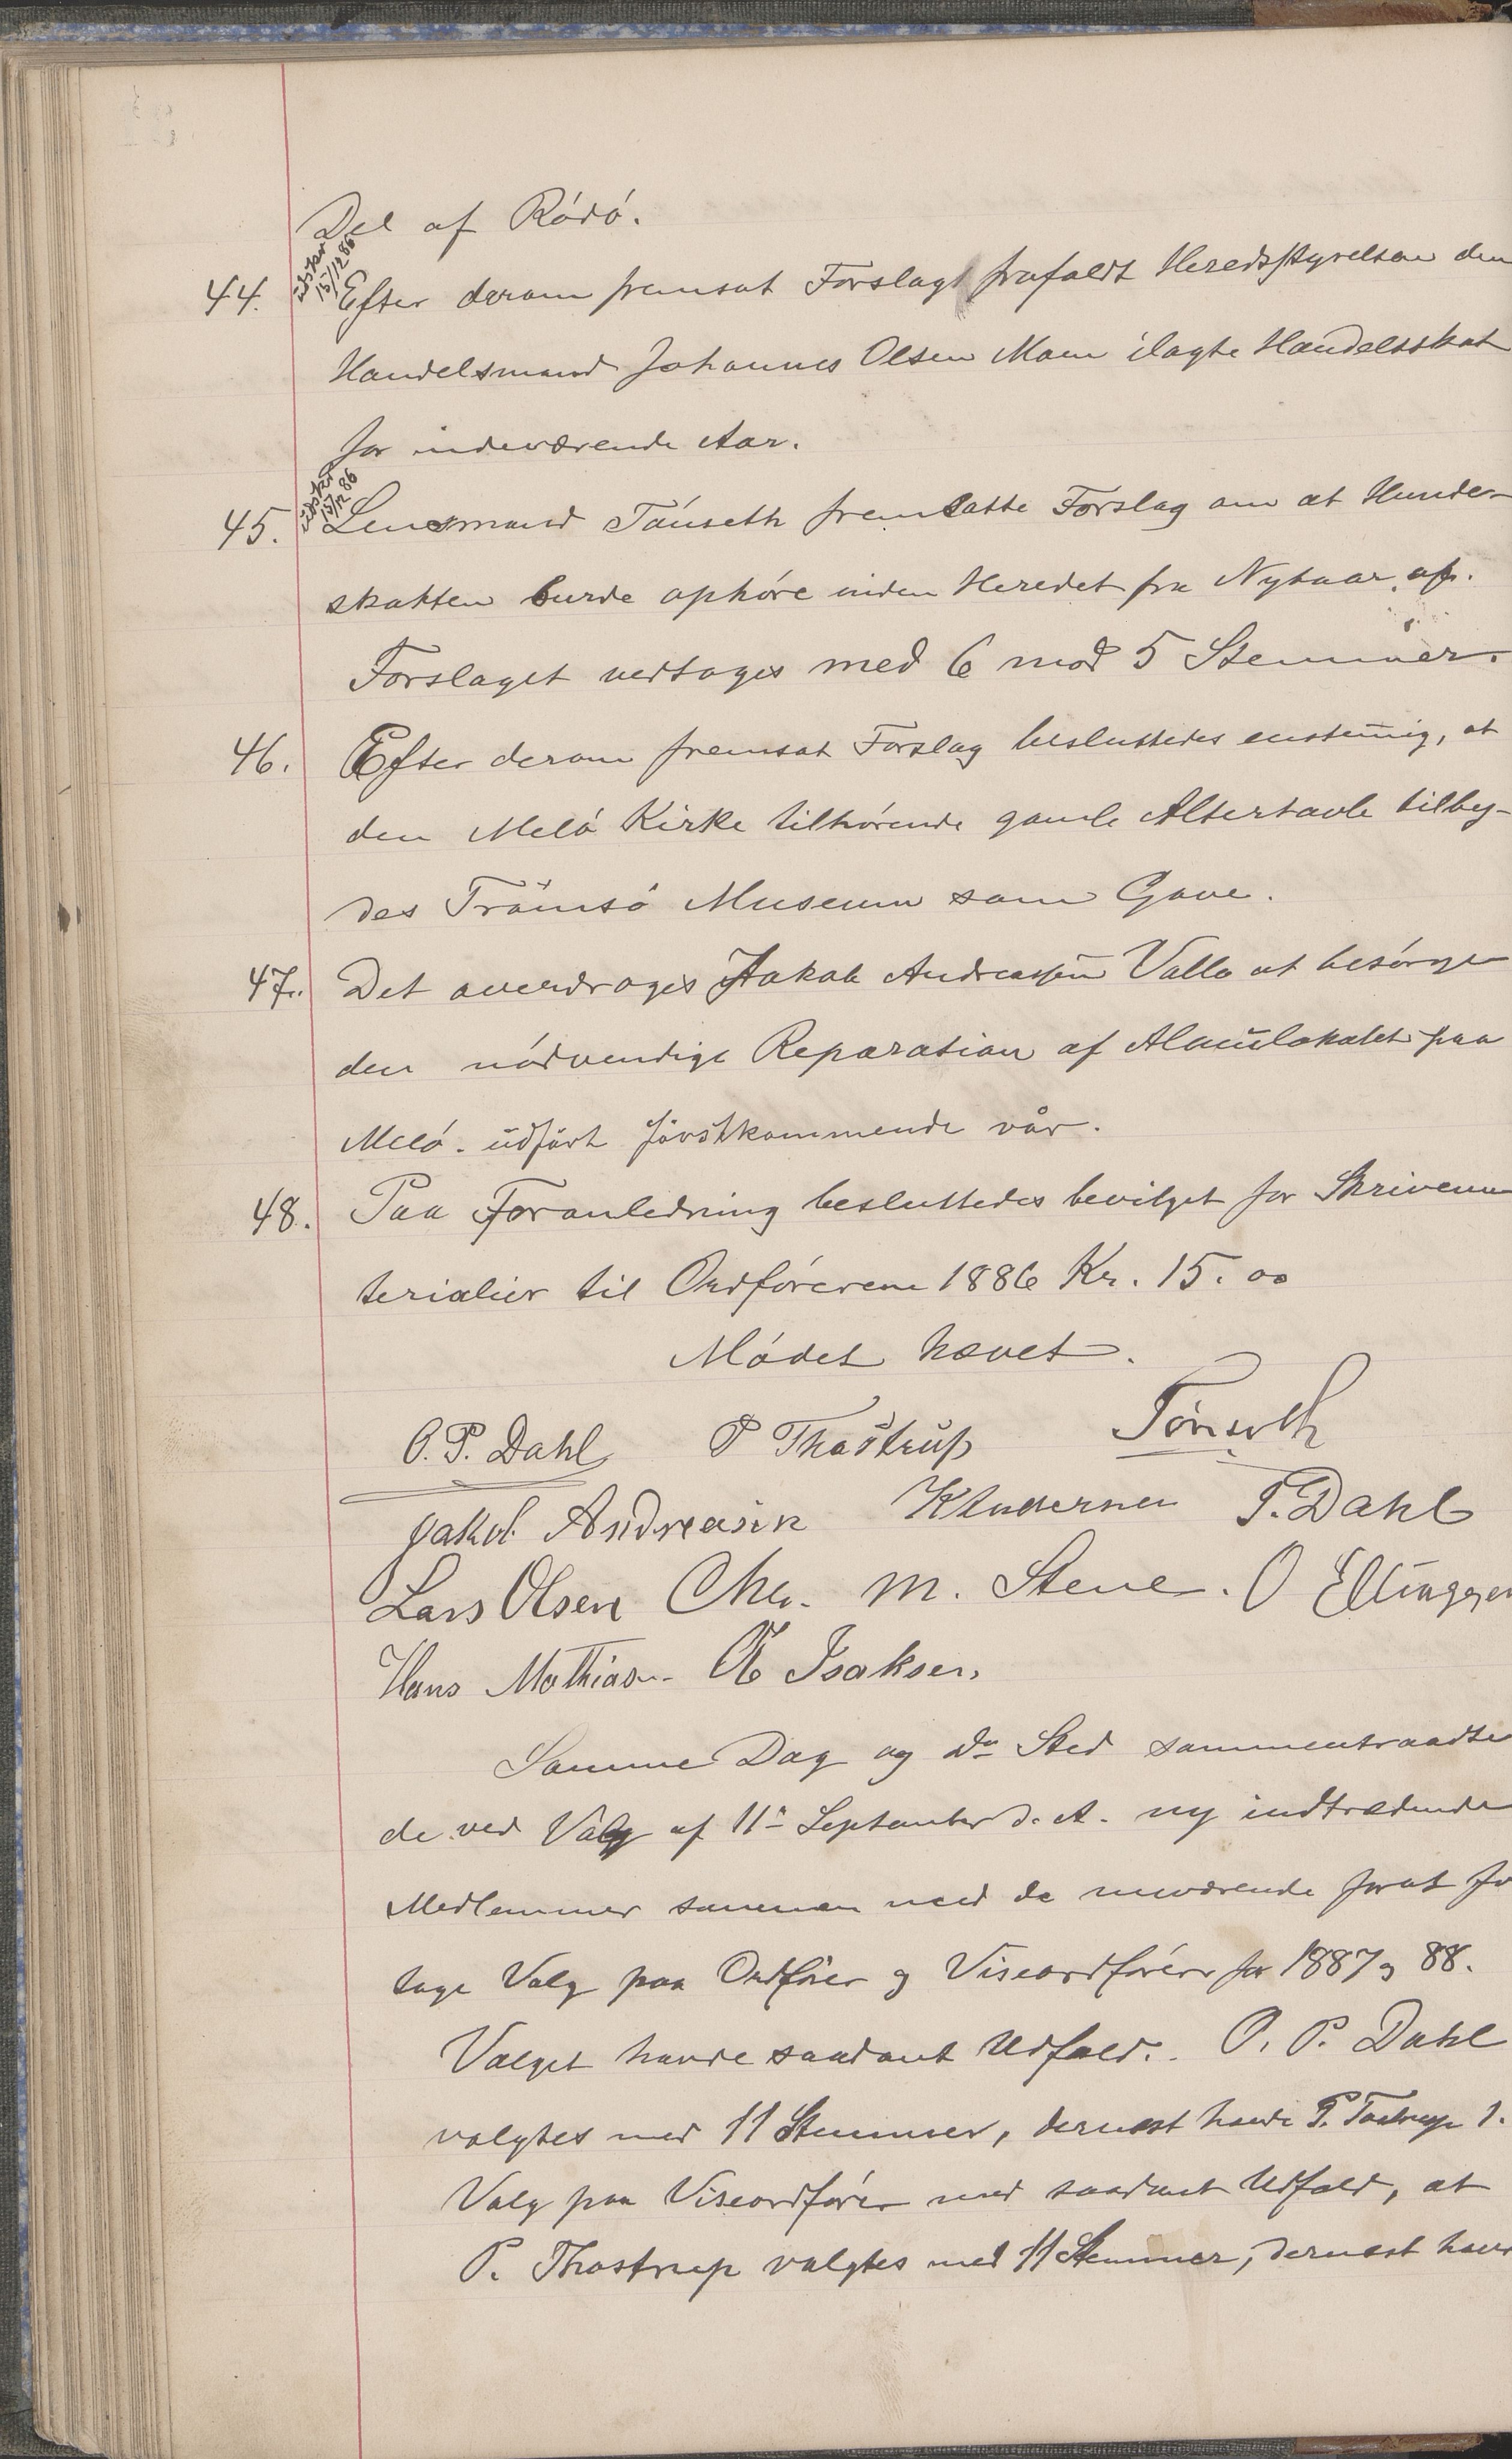 Del af Rødø.
44. udskr 15/12 86 Efter derom fremsat Forslag frafaldt Heredsstyrelsen den
Handelsmand Johannes Olsen Moen ilagte Handelsskat
for indeværende Aar.
45. udskr 15/12 86 Lensmand Tónseth fremsatte Forslag om at Hunde-
skatten burde ophøre inden Heredet fra Nytaar af.
Forslaget vedtoges med 6 mod 5 Stemmer.
46. Efter derom fremsat Forslag besluttedes enstem̅ig, at
den Melø Kirke tilhørende gamle Altertavle tilby-
des Trømsø Museum som Gave.
47. Det overdroges Jakob Andreassen Valla at besørge
den nødvendige Reparation af Lokalet paa
Melø. udført førstkommende vår.
48. Paa Foranledning besluttedes bevilget for Skrivema
terialier til Ordføreren 1886 Kr. 15.00
Mødet hævet.
O. P. Dahl P Thostrup Tønseth
Jakob Andreasen K Andersen T. Dahl
Lars Olsen Chr. M. Stene. O Ellingsen
Hans Mathias. Ole Isaksen,
Samme Dag og do Sted sammentraadte
de ved Valg af 11te September d. A. ny indtrædende
Medlemmer sammen med de nuværende forat fo
tage Valg paa Ordfører og Viseordfører for 1887 og 88.
Valget havde saadant Udfald. O. P. Dahl
valgtes med 11 Stemmer, dernæst havde P. Tostrup 1.
Valg paa Viseordfører med saadant Udfald, at
P. Thostrup valgtes med 11 Stemmer, dernæst havd